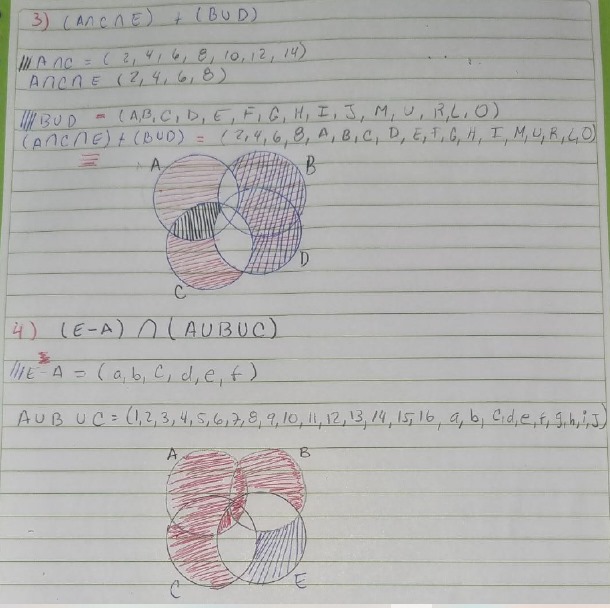 3) (A∩C∩E) + (B∪D)
A∩C = ( 2, 4, 6, 8, 10, 12, 14)
A∩C∩E (2, 4, 6, 8)
B∪D = (A,B, C, D, E, F, G, H, I, J, M, U, R, L, O)
(A∩C∩E)+(B∪D) = (2,4,6,8, A, B, C, D, E, F, G, H, I, M, U, R, L, O)
A B
D
C
4) (E-A) ∩ (A∪B∪C)
E-A = (a, b, c, d, e, f)
A∪B∪C = (1,2,3,4,5,6,7,8,9,10,11,12,13,14,15,16, a, b, c, d, e, f, g, h, i, J)
A B
C E